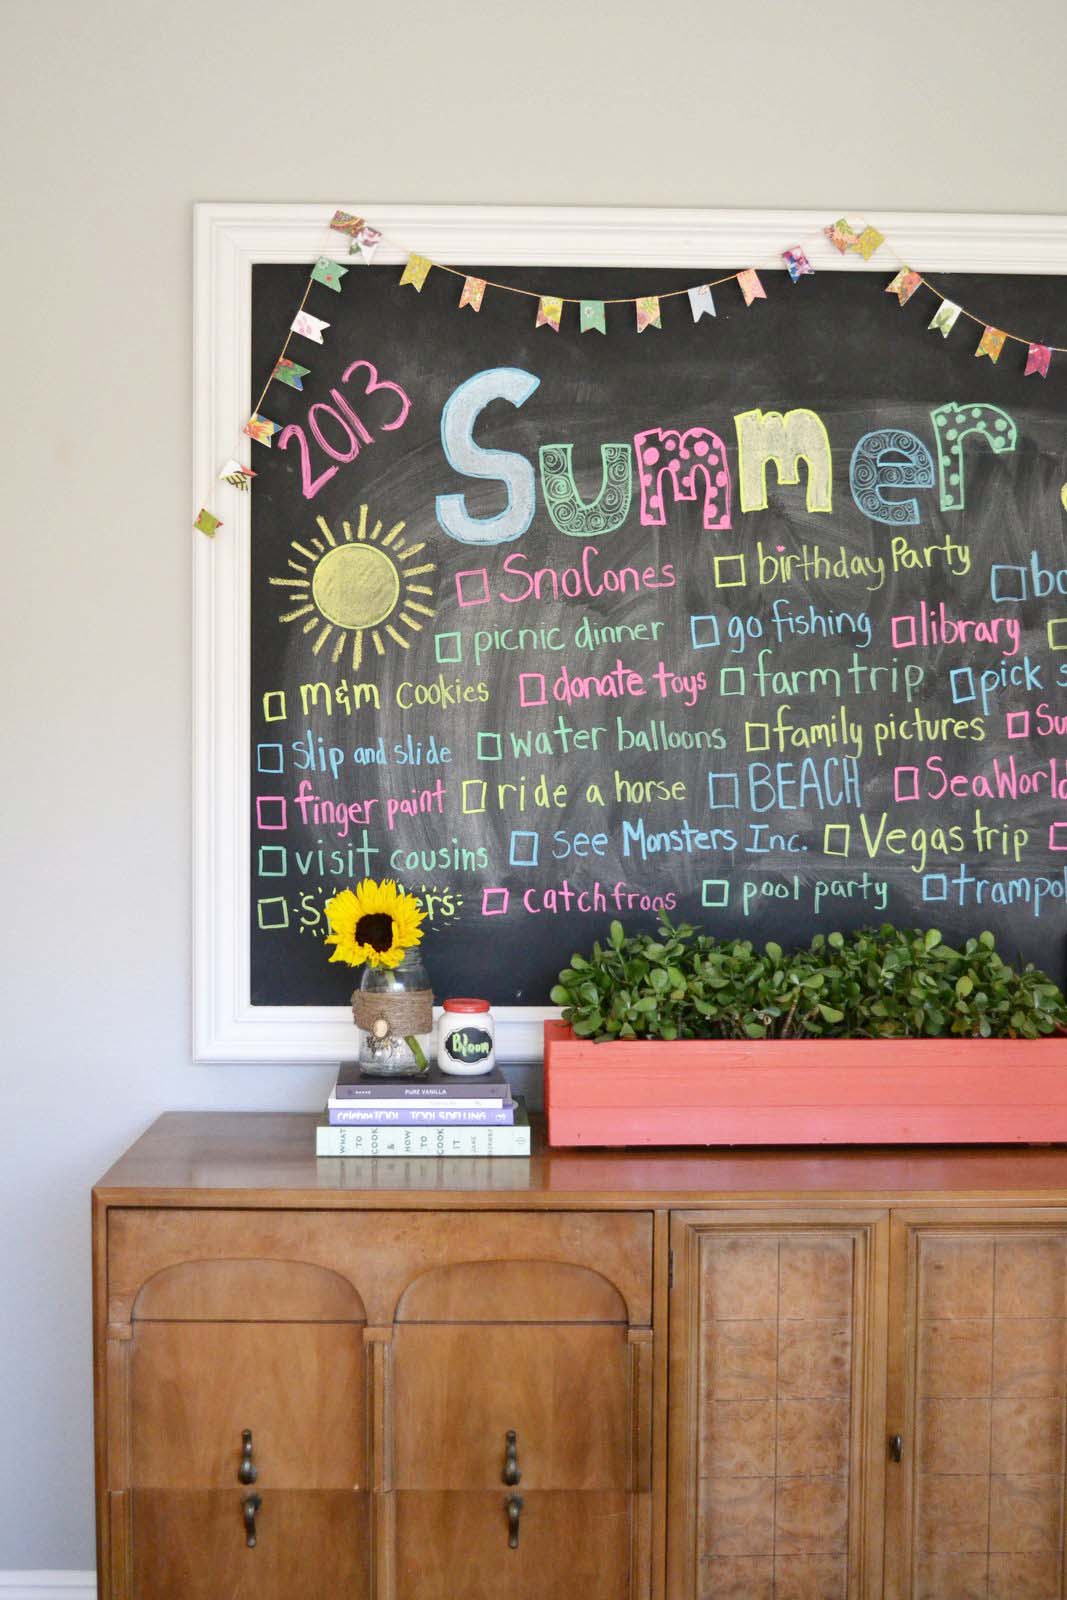 2013
Summer
☐ SnoCones ☐ birthday Party
☐ picnic dinner ☐ go fishing ☐ library
☐ m&m cookies ☐ donate toys ☐ farm trip ☐ pick
☐ slip and slide ☐ water balloons ☐ family pictures
☐ finger paint ☐ ride a horse ☐ BEACH ☐ SeaWorld
☐ visit cousins ☐ see Monsters Inc. ☐ Vegas trip
☐ catch frogs ☐ pool party
Bloom
PURE VANILLA
WHAT TO COOK & HOW TO COOK IT JANE